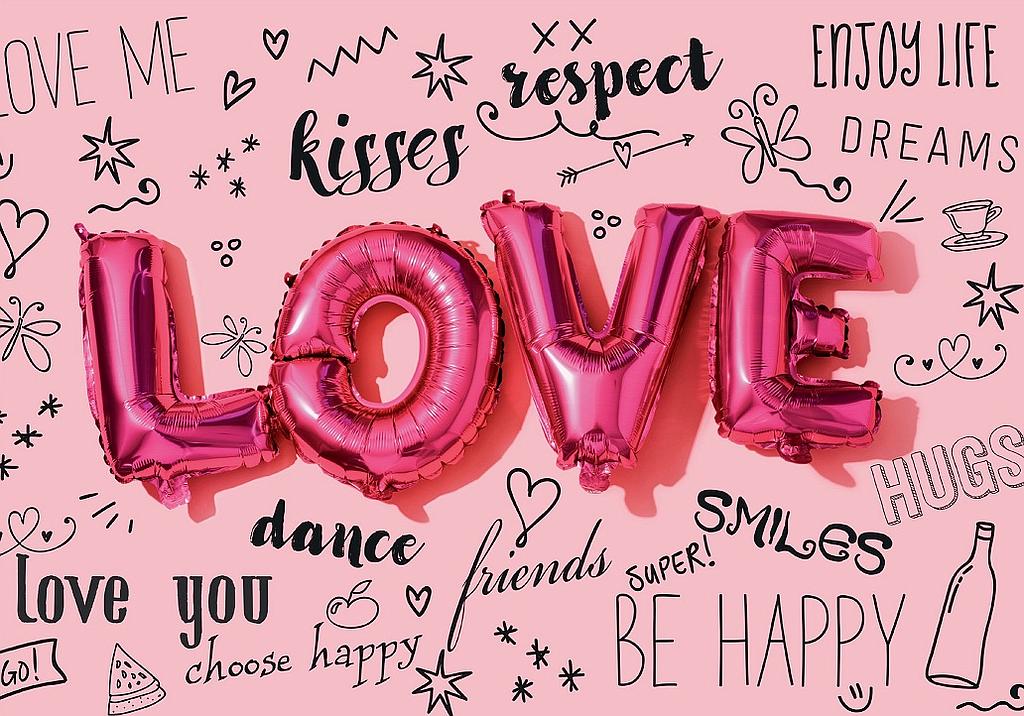 LOVE ME
XX
respect
ENJOY LIFE
kisses
DREAMS
LOVE
HUGS
dance
SMILES
friends
SUPER!
love you
BE HAPPY
choose happy
GO!